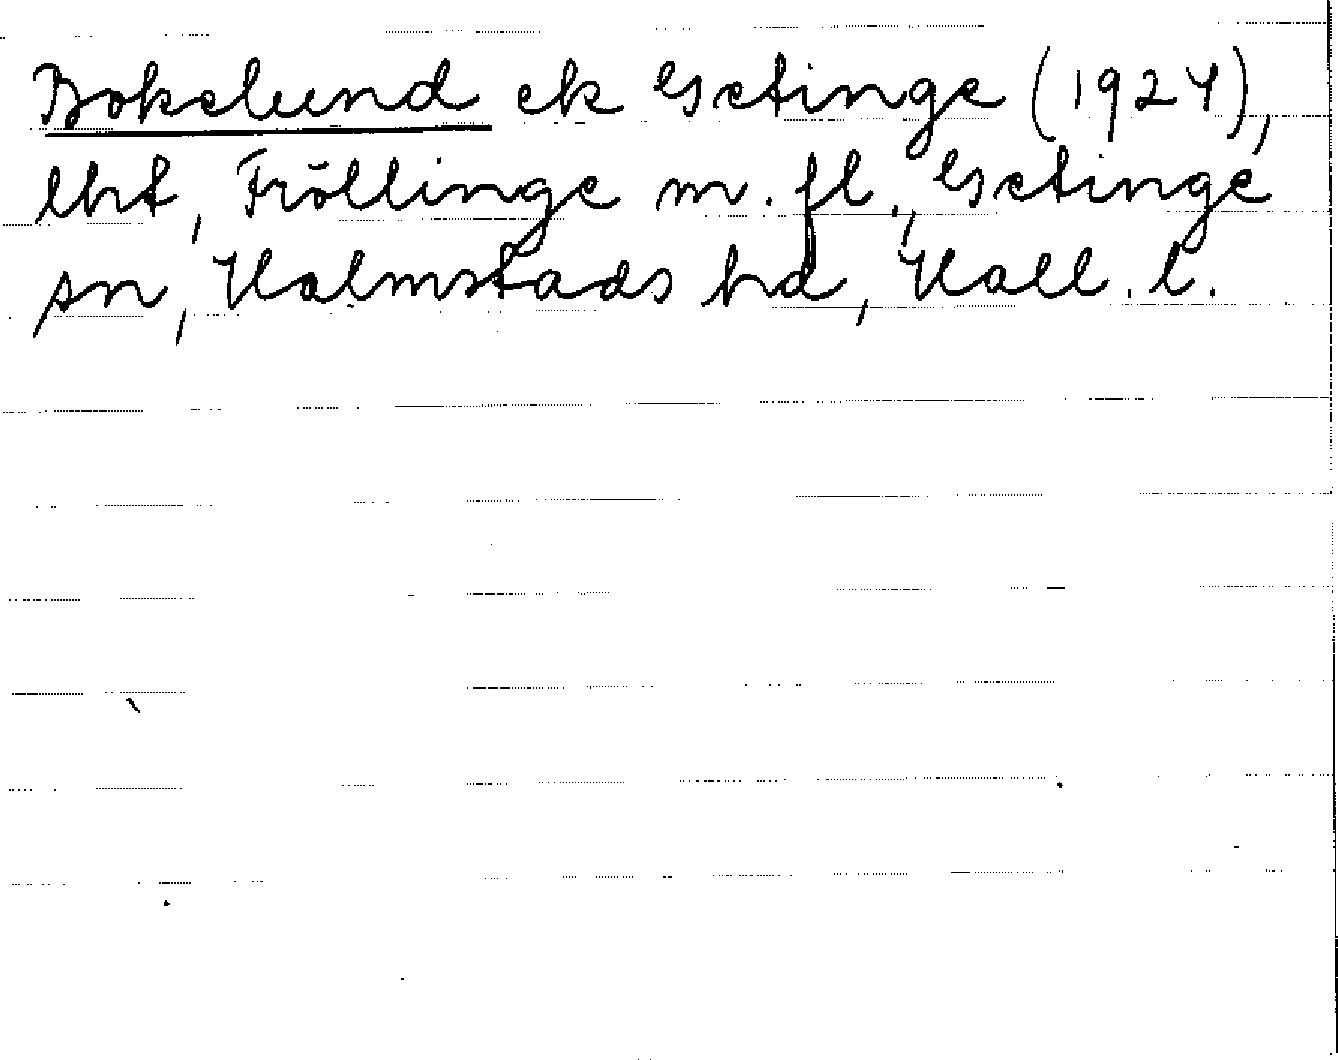 Bokelund ek Getinge (1924),
lht, Fröllinge m. fl., Getinge
sn, Halmstads hd, Hall. l.